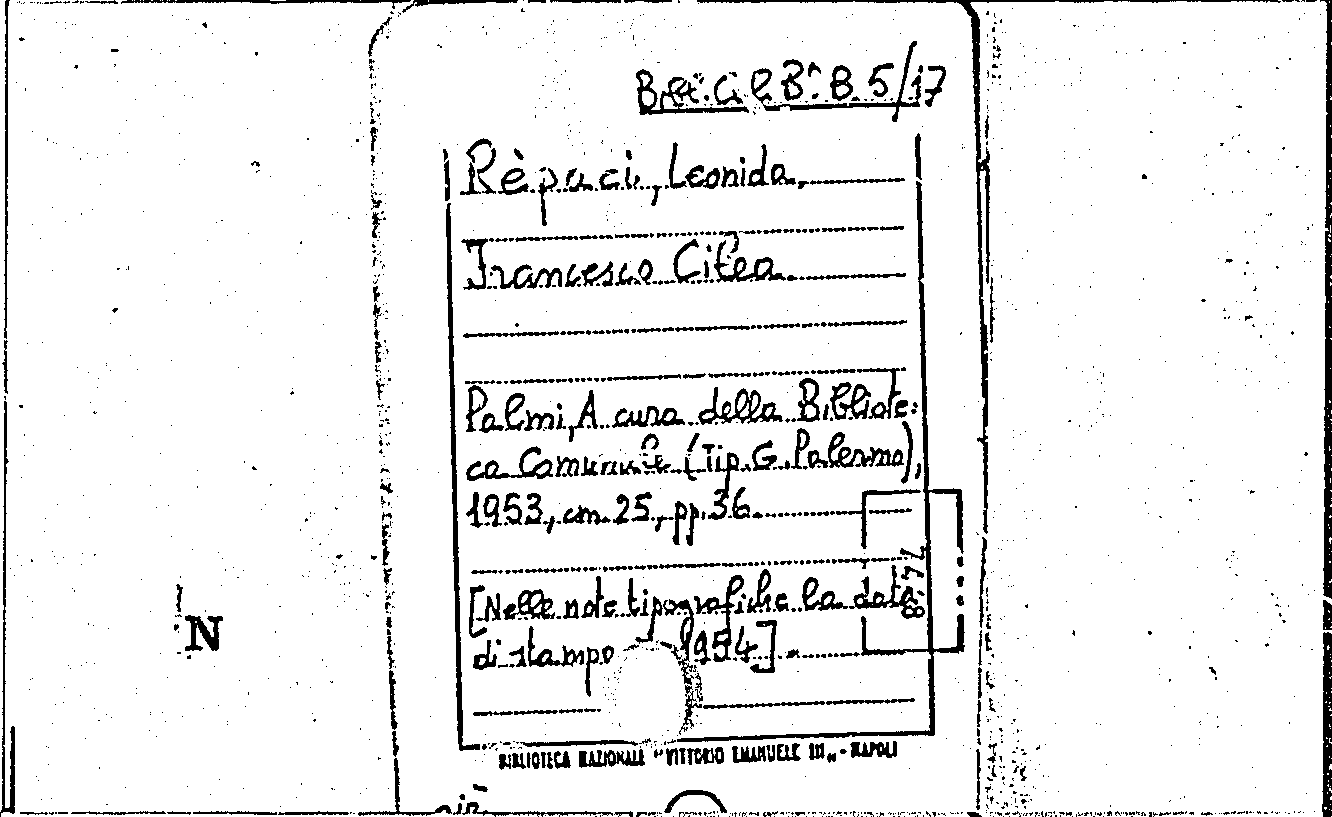 B. 5/17
Rèpaci, Leonida.
Francesco Cilea.
Palmi, A cura della Bibliote=
ca Comunale (Tip. G. Palermo),
1953, cm. 25, pp. 36.
[Nelle note tipografiche la data
di stampa 1954].
N
BIBLIOTECA NAZIONALE "VITTORIO EMANUELE III„ - NAPOLI